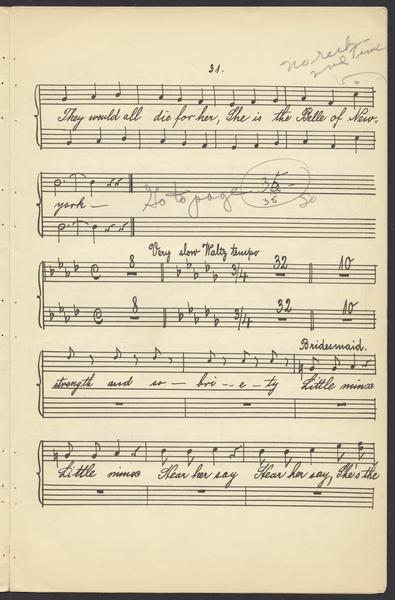 31.
no rest
2nd Time
They would all die for her, She is the Belle of New-
york — Go to page 35
35 30
Very slow Waltz tempo
8 3/4 32 10
8 3/4 32 10
Bridesmaid.
strength and so — bri - - e - ty Little minx
Little minx Hear her say Hear her say, She's the